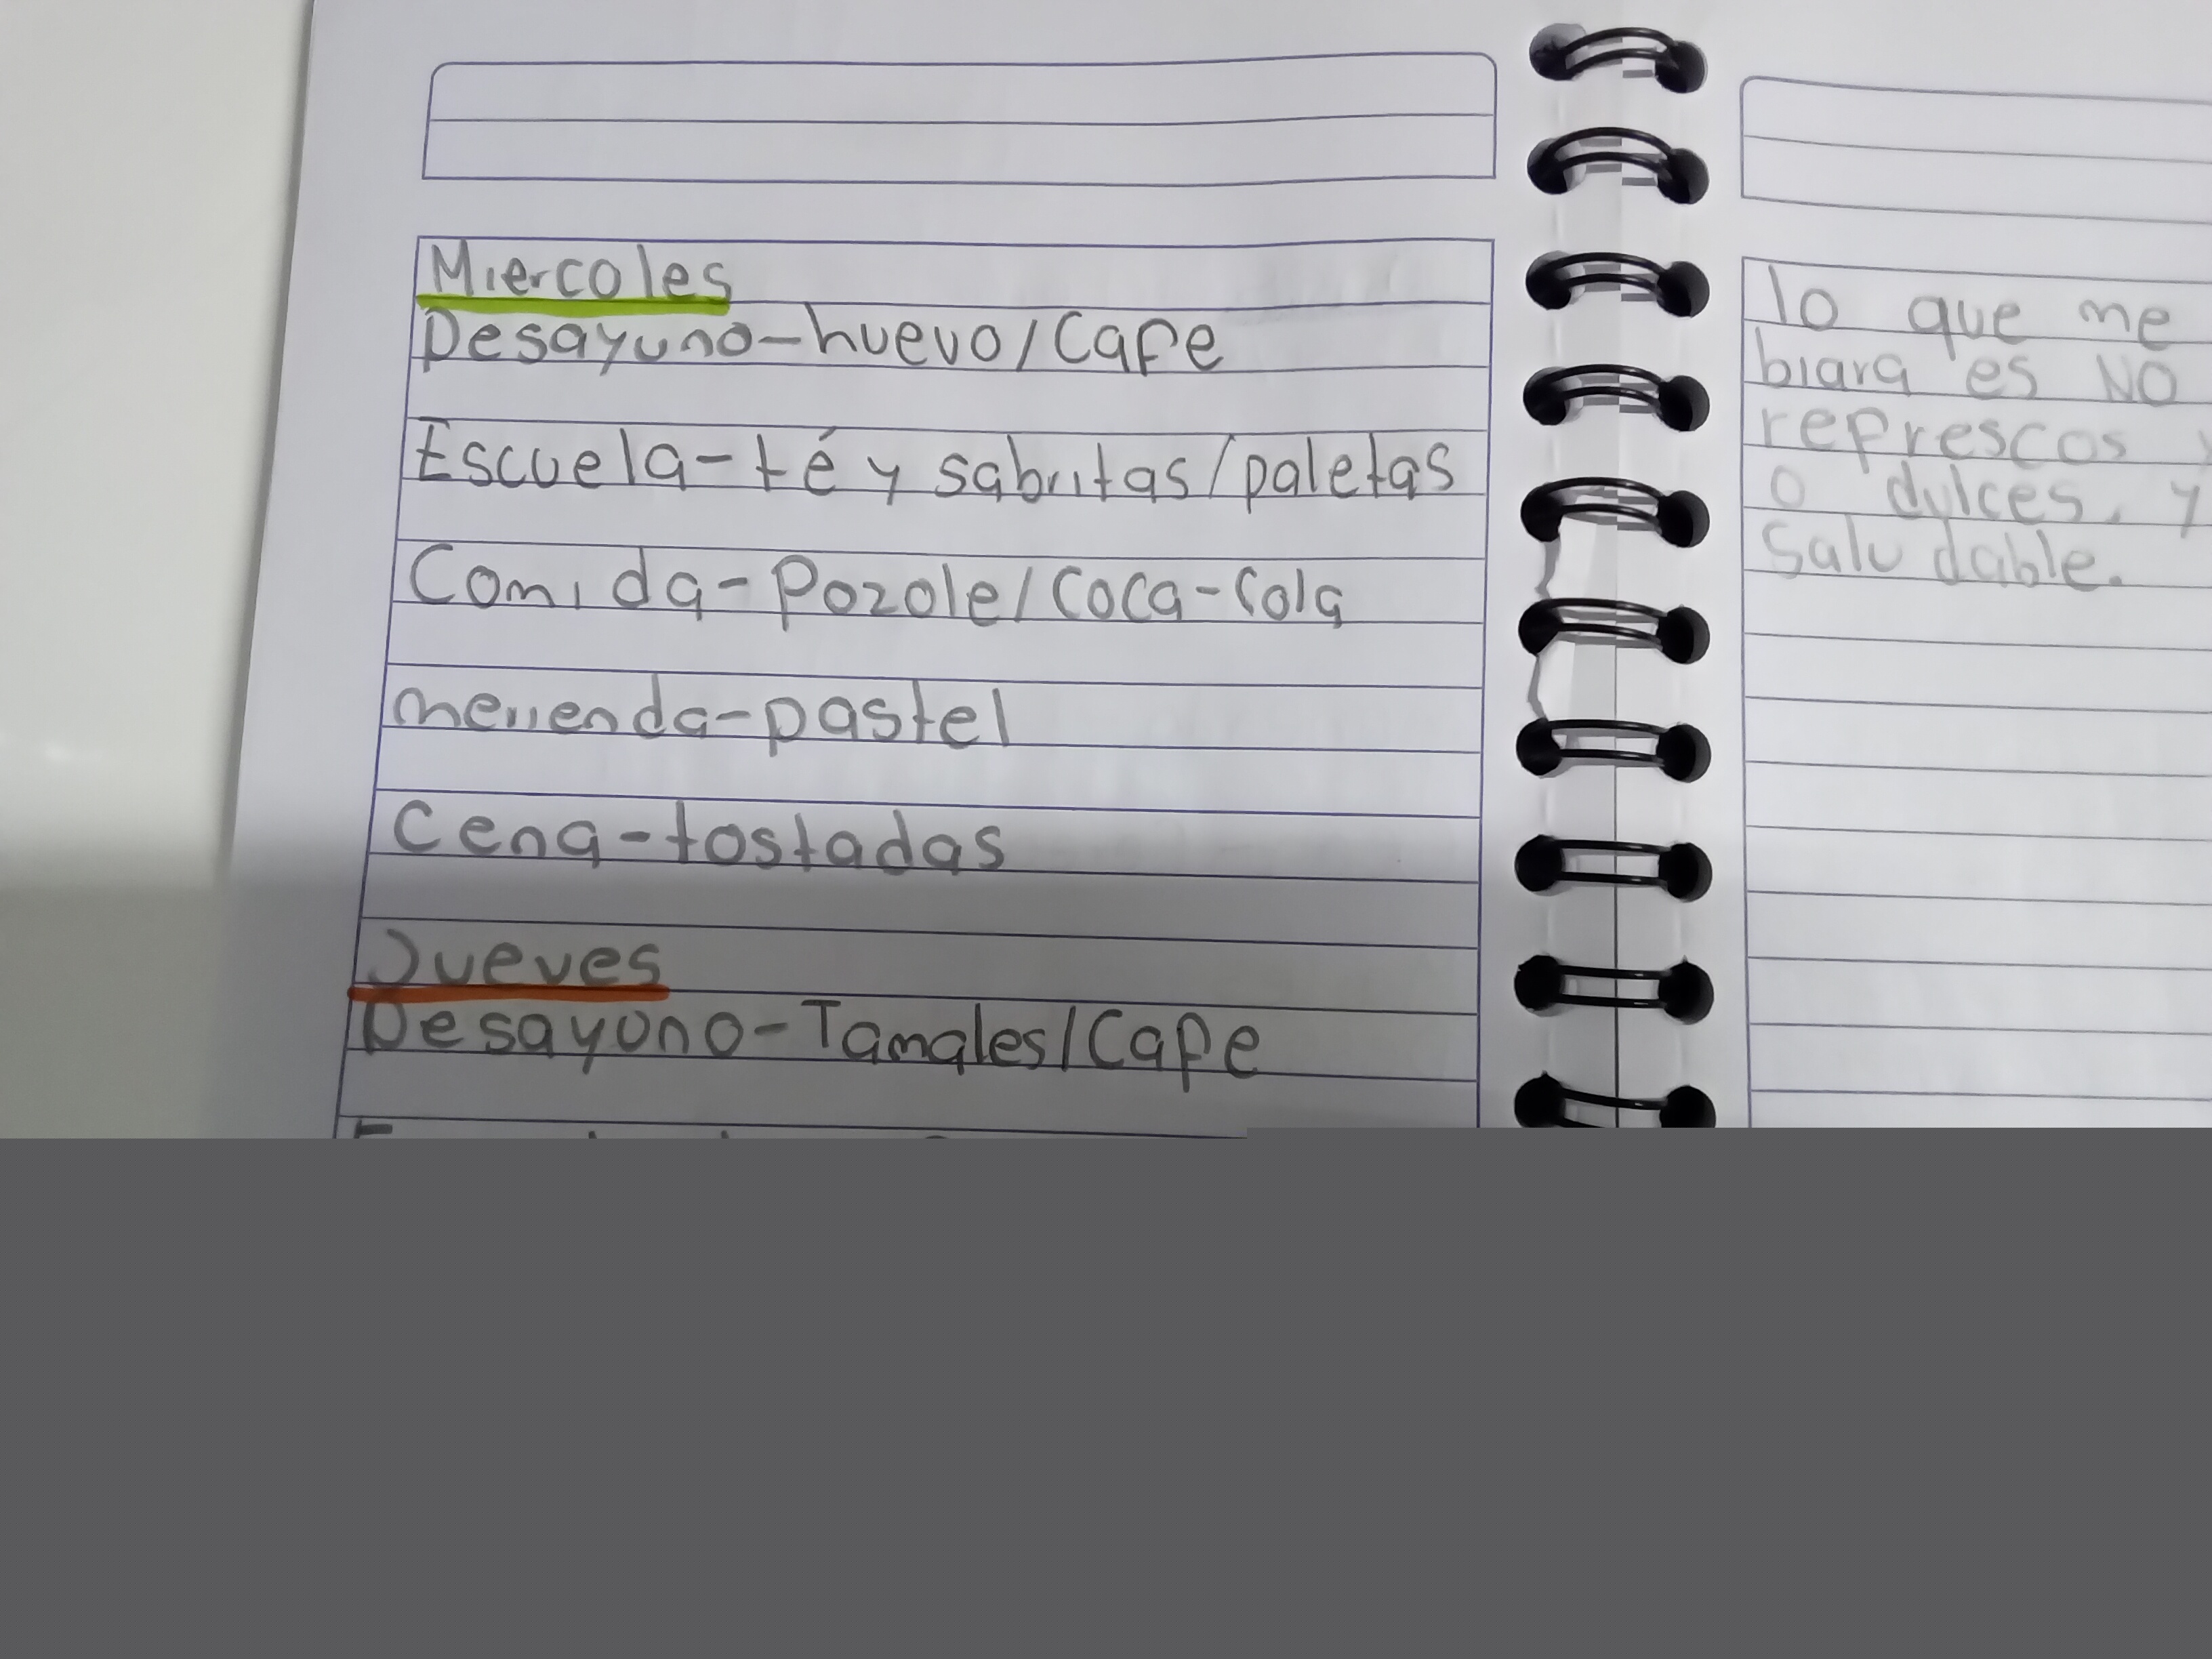 Miercoles
Desayuno-huevo/Cafe
Escuela-té y sabritas/paletas
Comida-Pozole/Coca-Cola
merienda-pastel
Cena-tostadas
Jueves
Desayuno-Tamales/Cafe
lo que me
biara es NO
represcos
o dulces, y
Saludable.